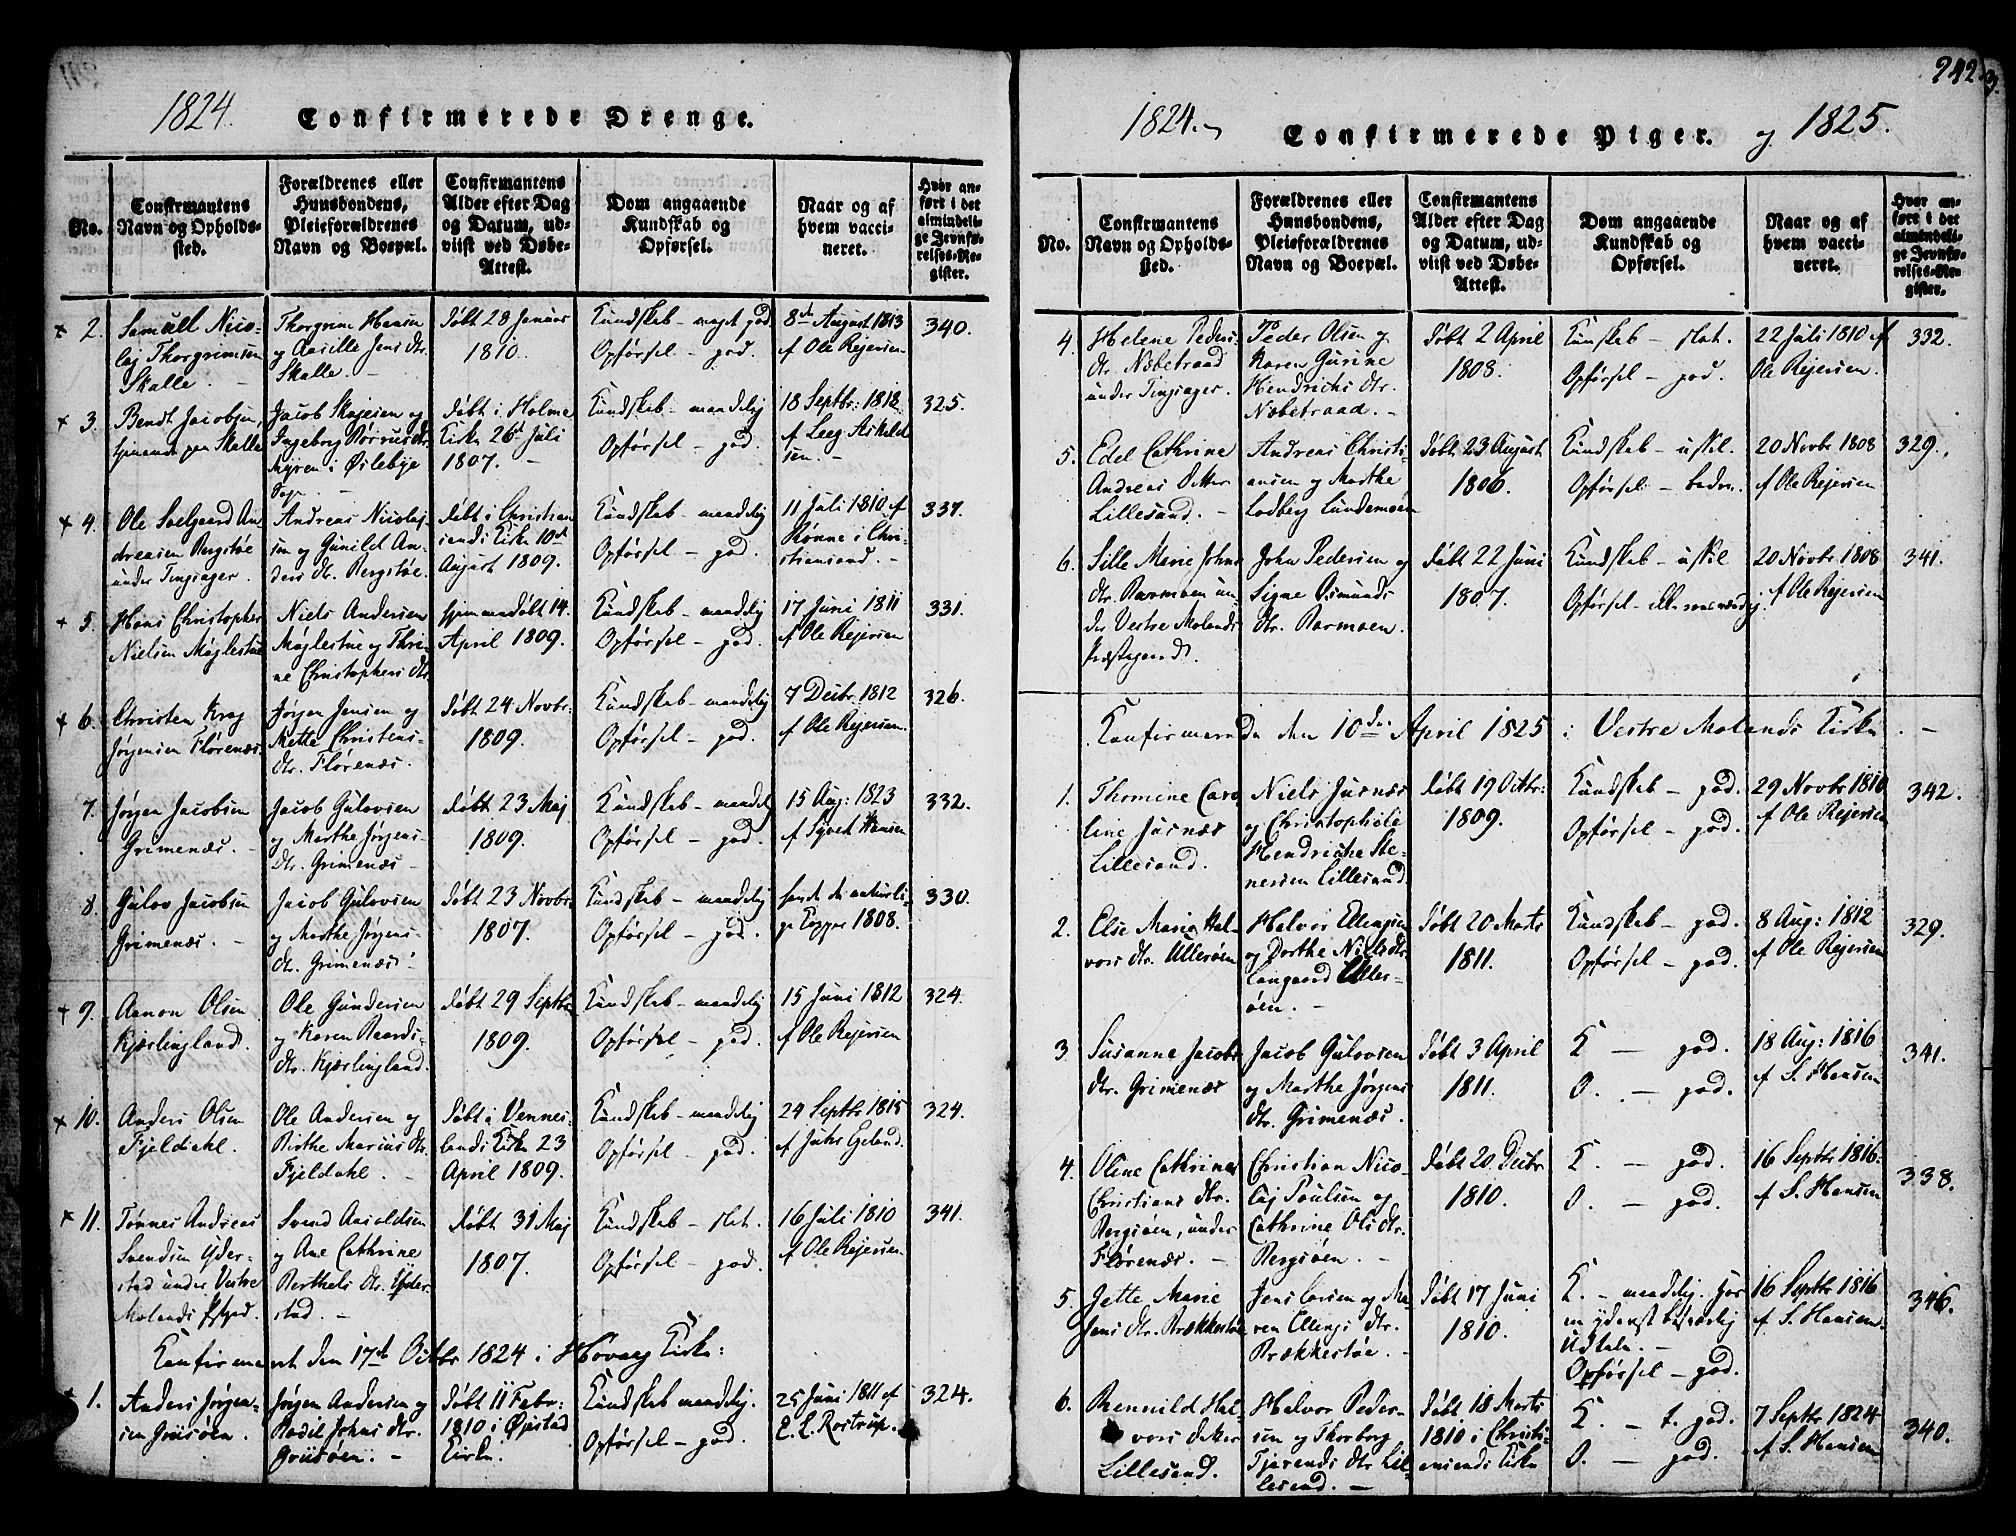 1824.
Confirmerede Drenge.
No.
Confirmantens
Navn og Opholds-
sted.
Forældrenes eller
Huusbondens,
Pleieforældrenes
Navn og Boepæl.
Confirmantens
Alder efter Dag
og Datum, ud-
viist ved Døbe-
Attest.
Dom angaaende
Kundskab og
Opførsel.
Naar og af
hvem vacci-
neret.
Hvor an-
ført i det
almindeli-
ge Jevnfø-
relses-Re-
gister.
+ 2.
Samuel Nico-
laj Thorgrimsen
Skalle.
Thorgrim Hansen
og Aasille Jens dtr.
Skalle.
døbt 28 Januar
1810.
Kundskab - meget god
Opførsel - god.
8de August 1813
af Ole Rejersen
340.
+ 3.
Bendt Jacobsen,
tjenende paa Skalle
Jacob
og
Ingeborg
Myren i Øslebye
Sogn.
døbt i Holme
Kirke 26de Juli
1807.
Kundskab - maadelig
Opførsel - god.
18 Septbr: 1812
af
325.
+ 4.
Ole Soelgaard An-
dreasen Bergstøe
under Tingsager.
Andreas Nicolaj-
sen og Gunild An-
ders dtr. Bergstøe.
døbt i Christian
sands Kirke 10de
August 1809.
Kundskab - maadelig
Opførsel - god.
11 Juli 1810 af
Rønne i Chri-
stiansand.
337.
+ 5.
Hans Christopher
Nielsen Møglestue
Niels Andersen
Møglestue og Thri-
ne Christophers dtr.
hjemmedøbt 14.
April 1809.
Kundskab - maadelig
Opførsel - god.
17 Juni 1811
af Ole Rejersen
331.
+ 6.
Christen Krog
Jørgensen Florenæs.
Jørgen Jensen og
Mette Christens-
dtr. Florenæs.
døbt 24 Novbr:
1809.
Kundskab - maadelig
Opførsel - god.
7 Decbr. 1812
af Ole Rejersen.
326.
7.
Jørgen Jacobsen
Grimenæs.
Jacob Gulovsen
og Marthe Jørgens-
dtr. Grimenæs.
døbt 23 Maj
1809.
Kundskab - maadelig
Opførsel - god.
15 Aug: 1823
af Syvert Hansen
332.
8.
Gulov Jacobsen
Grimenæs.
Jacob Gulovsen
og Marthe Jørgens-
dtr. Grimenæs.
døbt 23 Novbr.
1807.
Kundskab - maadelig
Opførsel - god.
havt de naturli-
ge Kopper 1808.
330.
+ 9.
Aanon Olsen
Kjærlingland.
Ole Gundersen
og Karen Baards-
dtr. Kjærlingland.
døbt 29 Septbr
1809.
Kundskab - maadelig
Opførsel - god.
15 Juni 1812
af Ole Rejersen
324.
+ 10.
Anders Olsen
Fjeldahl.
Ole Andersen og
Birthe Marius dtr.
Fjeldahl.
døbt i Vennes-
lands Kirke 23
April 1809.
Kundskab - maadelig
Opførsel - god.
24 Septbr 1815
af
Egeland.
324.
+ 11.
Tønnes Andreas
Svendsen Yder-
stad under Vestre
Molands Præstgjæld.
Svend Aasoldsen
og Ane Cathrine
Berthels dtr. Yder-
stad.
døbt 31 Maj
1807.
Kundskab - slet.
Opførsel - god.
16 Juli 1810
af Ole Rejersen
341.
Konfirmeret den 17de Octbr 1824 i Hovaag Kirke:
1.
Anders Jørgen-
sen Gruusøen.
Jørgen Andersen og
Bodil Johns dtr.
Gruusøen.
døbt 11 Febr:
1810 i Øjestad
Kirke.
Kundskab maadelig.
Opførsel - god.
25 Juni 1811 af
E. L. Rostrup.
324.
242
1824. og
Confirmerede Piger.
og 1825.
No.
Confirmantens
Navn og Opholds-
sted.
Forældrenes eller
Huusbondens,
Pleieforældrenes
Navn og Boepæl.
Confirmantens
Alder efter Dag
og Datum, ud-
viist ved Døbe-
Attest.
Dom angaaende
Kundskab og
Opførsel.
Naar og af
hvem vacci-
neret.
Hvor an-
ført i det
almindeli-
ge Jevnfø-
relses-Re-
gister.
4.
Helene Peders
dtr. Næbetraad
under Tingsager.
Peder Olsen og
Karen Gurine
Hendrichs dtr.
Næbetraad.
døbt 2 April
1808.
Kunskab - slet.
Opførsel - god.
22 Juli 1810 af
Ole Rejersen.
332.
5.
Edel Cathrine
Andreas Datter
Lillesand.
Andreas Christi-
ansen og Marthe
Lodberg Lundemoen
døbt 23 August
1806.
Kundskab - uskil.
Opførsel - bedre.
20 Novbr 1808
af Ole Rejersen
329.
6.
Sille Marie Johns
dtr. Barmoen un-
der Vestre Molands
Præstegjæld.
John Pedersen og
Signe Osmunds
dtr. Barmoen.
døbt 22 Juni
1807.
Kundskab - uskil
Opførsel -
20 Novbr 1808
af Ole Rejersen
341.
Konfirmerede den 10de April 1825 i Vestre Molands Kirke.
1.
Thomine Caro
line Jusnæs
Lillesand.
Niels Jusnæs
og Christophile
Hendriche Ste-
nersen Lillesand.
døbt 19 Octbr:
1809.
Kundskab - god.
Opførsel - god.
29 Novbr 1810
af Ole Rejersen
342.
2.
Else Marie Hal-
vors dtr. Ullerøen.
Halvor Ellingsen
og Dorthe Niels dtr.
Langaard Uller-
øen.
døbt 20 Marts
1811.
Kundskab - god.
Opførsel - god.
8 Aug: 1812
af Ole Rejersen
329.
3.
Susanne Jacobs
dtr. Grimenæs
Jacob Gulovsen
og Marthe Jørgens
dtr. Grimenæs.
døbt 3 April
1811.
K - god.
O. - god.
18 Aug: 1816
af S. Hansen
341.
4.
Oline Cathrine
Christians dtr.
Bergsøen, under
Florenæs.
Christian Nico-
laj Poulsen og
Cathrine Ols dtr.
Bergsøen.
døbt 20 Decbr
1810.
K. - god.
O. - god.
16 Septbr 1816.
af S. Hansen
338.
5.
Jette Marie
Jens dtr. Brækkestøe
Jens Larsen og Ma-
ren Ellings dtr.
Brækkestøe.
døbt 17 Juni
1810.
K. - maadelig. har
en yderst besværlig
Udtale.
Opførsel - god.
16 Septbr 1816
af S. Hansen.
346.
6.
Rennild Hal-
vors datter
Lillesand.
Halvor Peder-
sen og Thorborg
Tjerands dtr Lil-
lesand.
døbt 18 Marts
1810 i Christi-
ansands Kirke
K. - t. god.
O. - god.
7 Septbr 1824
af S. Hansen
340.